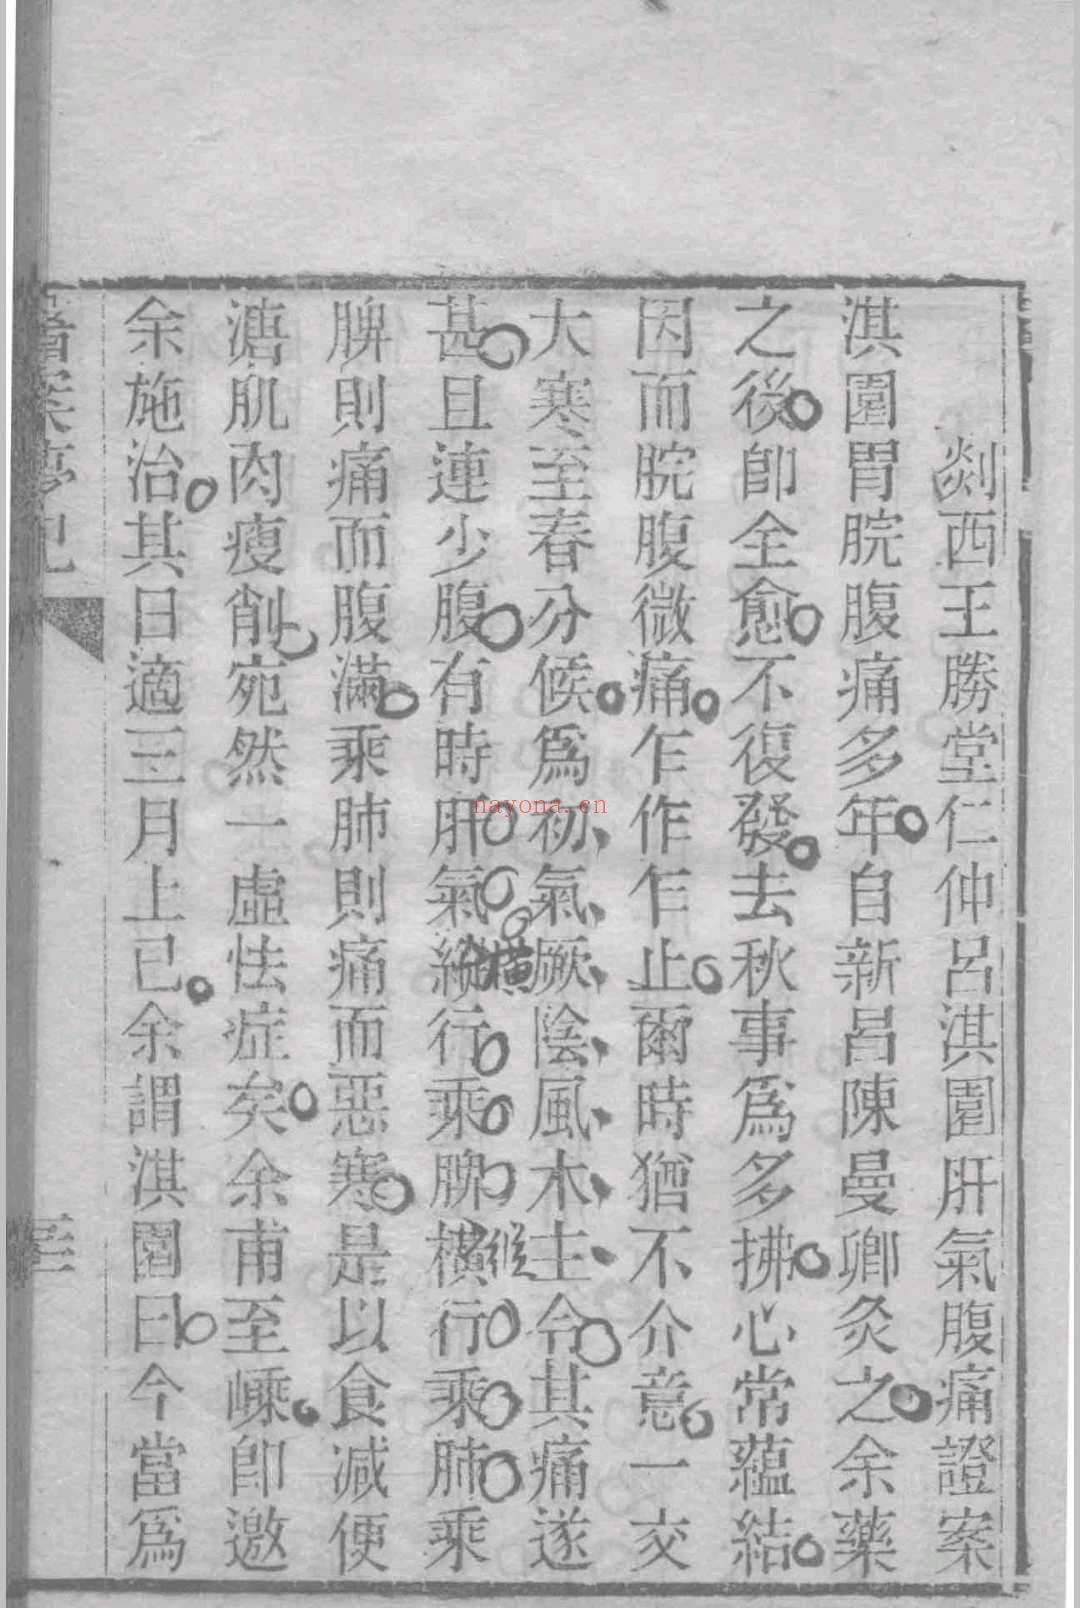 剡西王勝堂仁仲呂淇園肝氣腹痛證案
淇園胃脘腹痛多年自新昌陳曼卿灸之余藥
之後卽全愈不復發去秋事爲多拂心常蘊結
因而脘腹微痛乍作乍止爾時猶不介意一交
大寒至春分候爲初氣厥陰風木主令其痛遂
甚且連少腹有時肝氣縱行乘脾橫行乘肺乘
橫
縱
脾則痛而腹滿乘肺則痛而惡寒是以食减便
溏肌肉瘦削宛然一虛怯症矣余甫至嵊卽邀
余施治其日適三月上巳余謂淇園曰今當爲
醫案夢記
nayona.cn